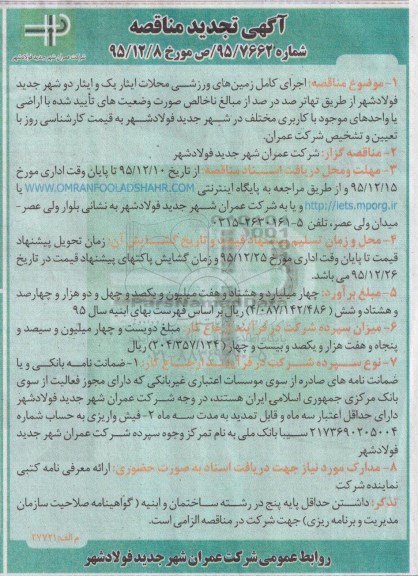 آگهی تجدید مناقصه
شماره ۹۵/۷۶۶۲/ص مورخ ۹۵/۱۲/۸
شرکت عمران شهر جدید فولادشهر
۱- موضوع مناقصه: اجرای کامل زمین‌های ورزشی محلات ایثار یک و ایثار دو شهر جدید
فولادشهر از طریق تهاتر صد در صد از مبالغ ناخالص صورت وضعیت های تأیید شده با اراضی
یا واحدهای موجود با کاربری مختلف در شهر جدید فولادشهر به قیمت کارشناسی روز با
تعیین و تشخیص شرکت عمران.
۲- مناقصه گزار: شرکت عمران شهر جدید فولادشهر
۳- مهلت و محل دریافت اسناد مناقصه: از تاریخ ۹۵/۱۲/۱۰ تا پایان وقت اداری مورخ
۹۵/۱۲/۱۵ و از طریق مراجعه به پایگاه اینترنتی WWW.OMRANFOOLADSHAHR.COM یا
http://iets.mporg.ir و یا به شرکت عمران شهر جدید فولادشهر به نشانی بلوار ولی عصر-
میدان ولی عصر، تلفن ۵-۰۳۱۵۲۶۳۰۱۶۱
۴- محل و زمان تسلیم پیشنهاد قیمت و تاریخ گشایش آن: زمان تحویل پیشنهاد
قیمت تا پایان وقت اداری مورخ ۹۵/۱۲/۲۵ و زمان گشایش پاکتهای پیشنهاد قیمت در تاریخ
۹۵/۱۲/۲۶ می باشد.
۵- مبلغ برآورد: چهار میلیارد و هشتاد و هفت میلیون و یکصد و چهل و دو هزار و چهارصد
و هشتاد و شش (۴/۰۸۷/۱۴۲/۴۸۶) ریال بر اساس فهرست بهای ابنیه سال ۹۵
۶- میزان سپرده شرکت در فرآیند ارجاع کار: مبلغ دویست و چهار میلیون و سیصد و
پنجاه و هفت هزار و یکصد و بیست و چهار (۲۰۴/۳۵۷/۱۲۴) ریال
۷- نوع سپرده شرکت در فرآیند ارجاع کار: ۱- ضمانت نامه بانکی و یا
ضمانت نامه های صادره از سوی موسسات اعتباری غیربانکی که دارای مجوز فعالیت از سوی
بانک مرکزی جمهوری اسلامی ایران هستند، در وجه شرکت عمران شهر جدید فولادشهر
دارای حداقل اعتبار سه ماه و قابل تمدید به مدت سه ماه ۲- فیش واریزی به حساب شماره
۲۱۷۳۶۹۰۲۰۵۰۰۴ سیبا بانک ملی به نام تمرکز وجوه سپرده شرکت عمران شهر جدید
فولادشهر
۸- مدارک مورد نیاز جهت دریافت اسناد به صورت حضوری: ارائه معرفی نامه کتبی
نماینده شرکت
تذکر: داشتن حداقل پایه پنج در رشته ساختمان و ابنیه (گواهینامه صلاحیت سازمان
مدیریت و برنامه ریزی) جهت شرکت در مناقصه الزامی است.
م الف: ۲۷۷۲۱
روابط عمومی شرکت عمران شهر جدید فولادشهر